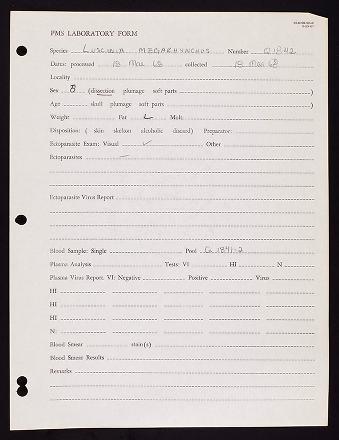 PMS LABORATORY FORM
Species Luscinia megarhynchos Number Q1842
Dates: processed 18 Mar 68 collected 18 Mar 68
Locality
Sex ( dissection plumage soft parts )
Age ( skull plumage soft parts )
Weight Fat L Molt
Disposition: ( skin skeleton alcoholic discard) Preparator:
Ectoparasite Exam: Visual ✓ Other
Ectoparasites —
Ectoparasite Virus Report
Blood Sample: Single Pool Q 1841-2
Plasma Analysis Tests: VI HI N
Plasma Virus Report: VI: Negative Positive Virus
HI
HI
HI
N:
Blood Smear stain(s)
Blood Smear Results
Remarks